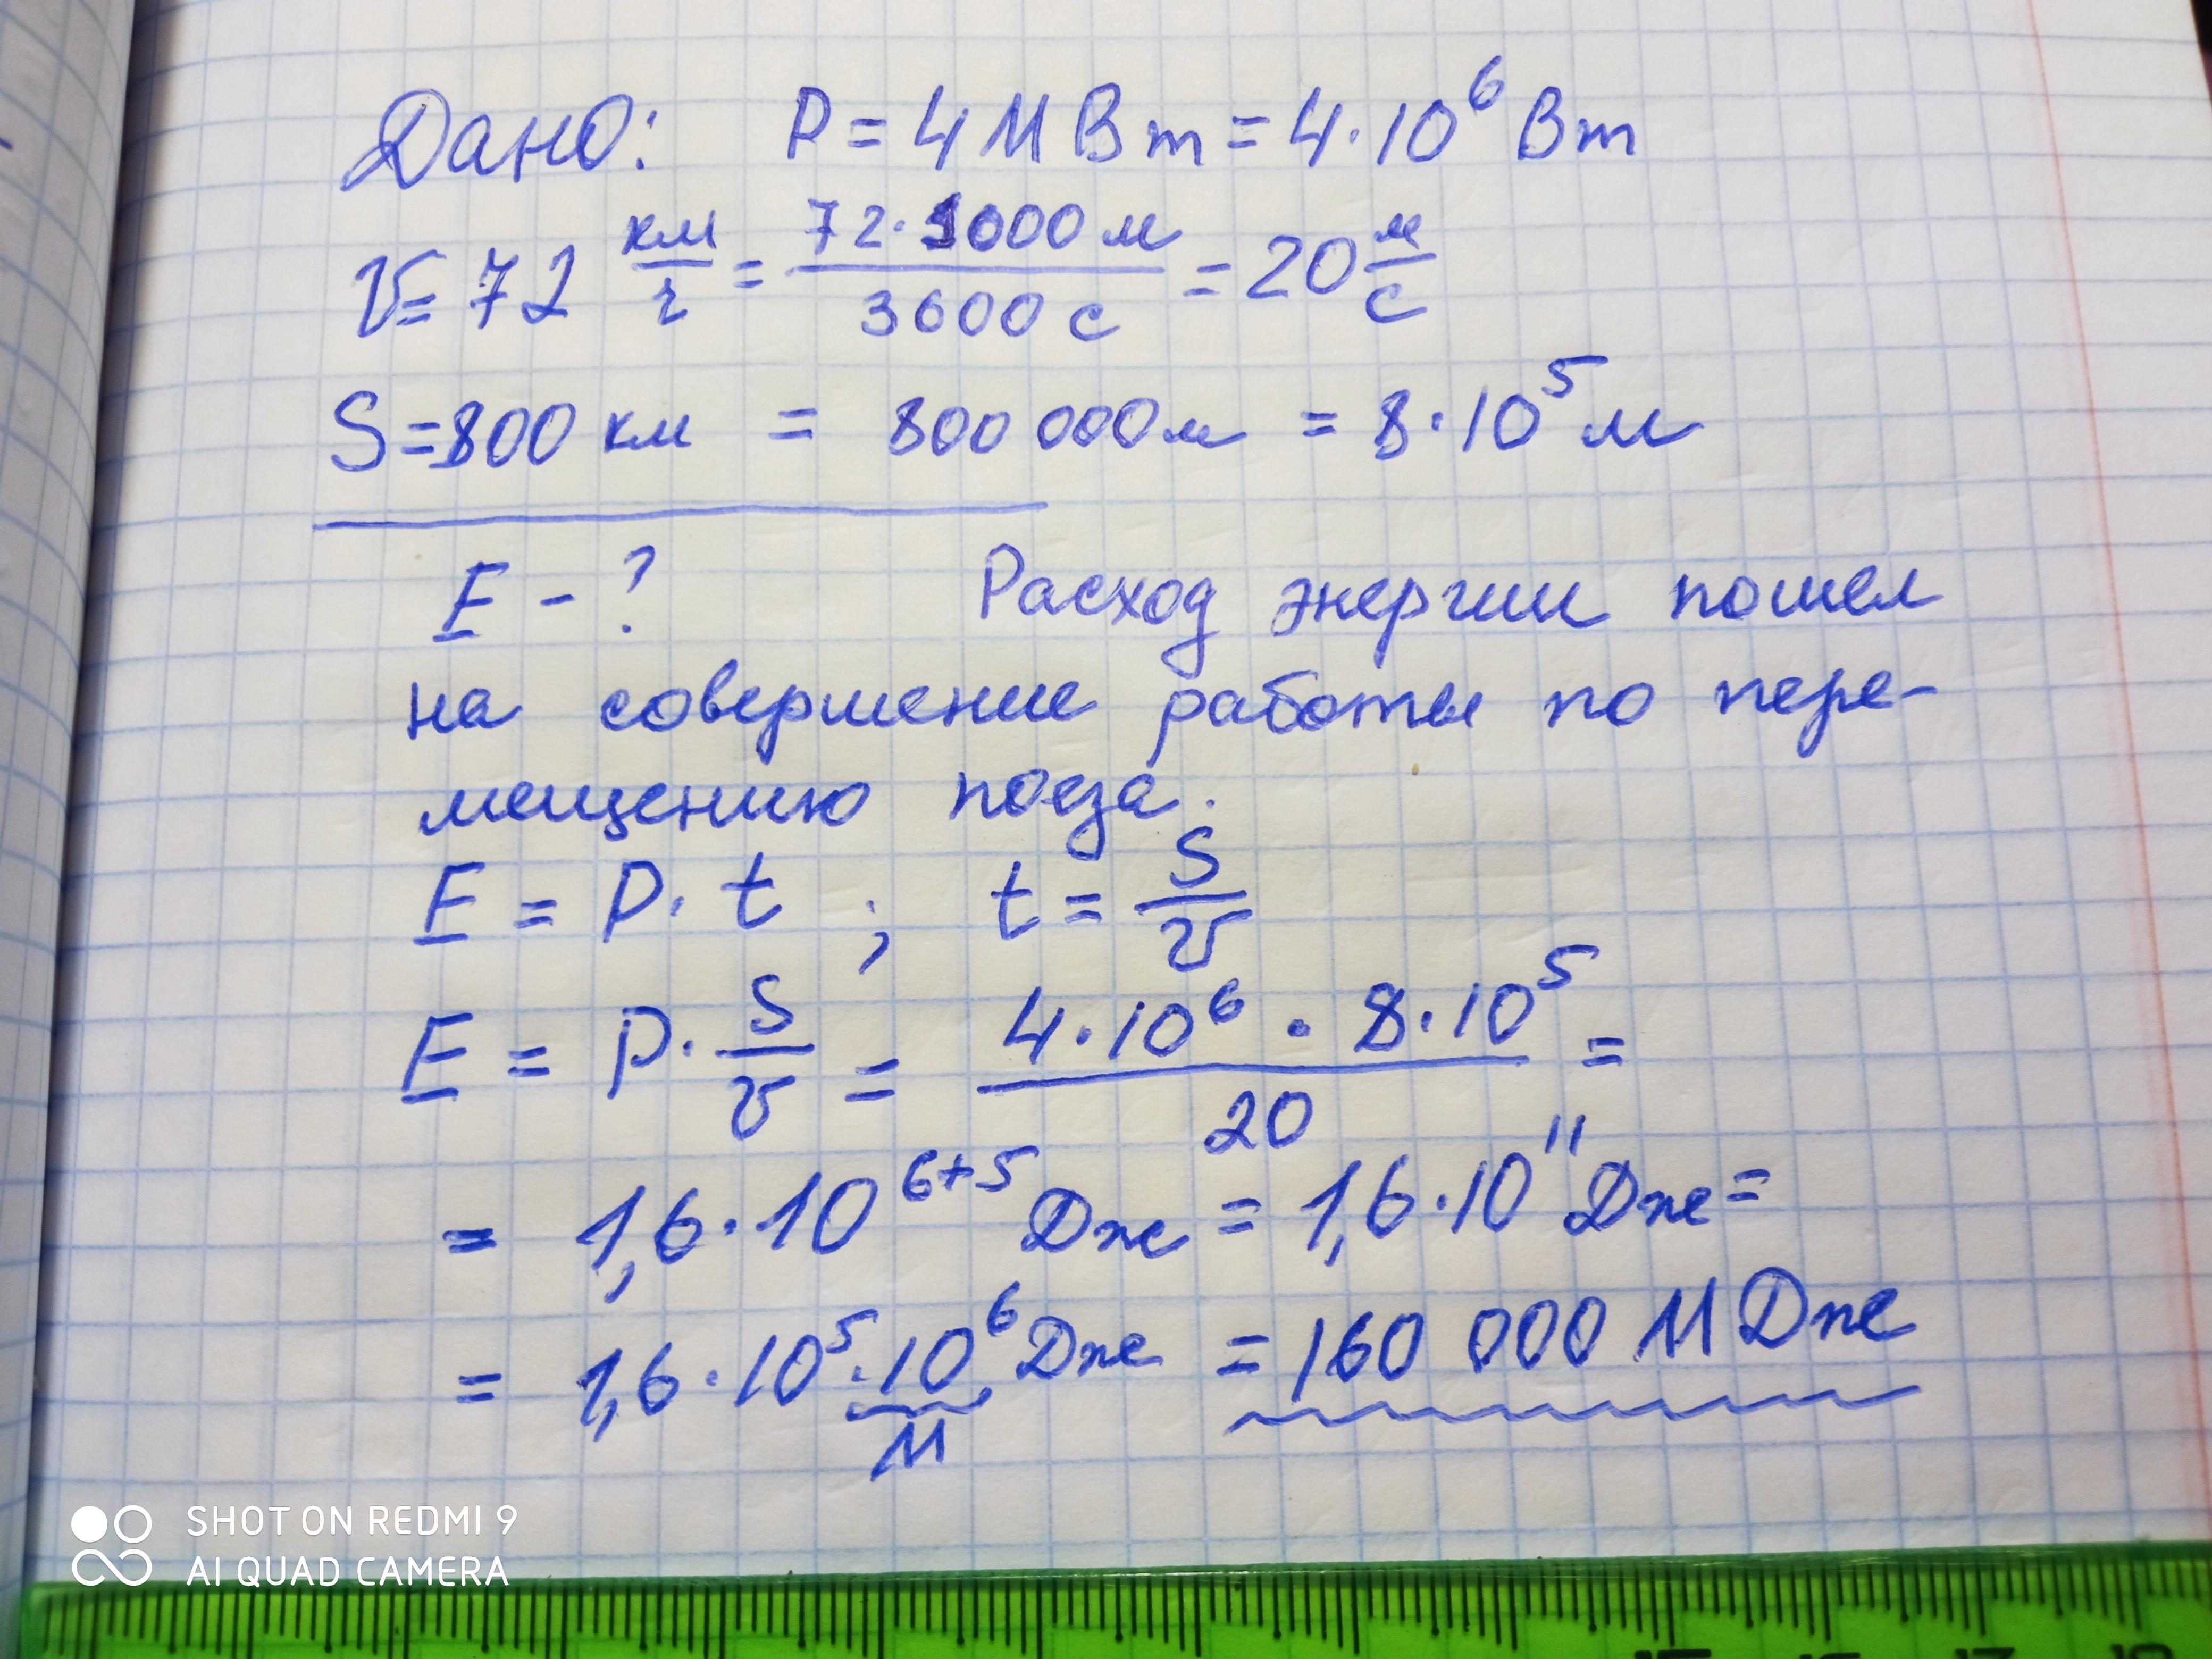 Дано: P = 4 МВт = 4·10⁶ Вт
v = 72 км/г = 72·1000 м / 3600 с = 20 м/с
S = 800 км = 800 000 м = 8·10⁵ м
E - ? Расход энергии пошел
на совершение работы по пере-
мещению поеза.
E = P·t ; t = S/v
E = P· S/v = 4·10⁶ · 8·10⁵ / 20 =
= 1,6·10⁶⁺⁵ Дж = 1,6·10¹¹ Дж =
= 1,6·10⁵·10⁶ Дж = 160 000 МДж
М
SHOT ON REDMI 9
AI QUAD CAMERA
15 16 17 18